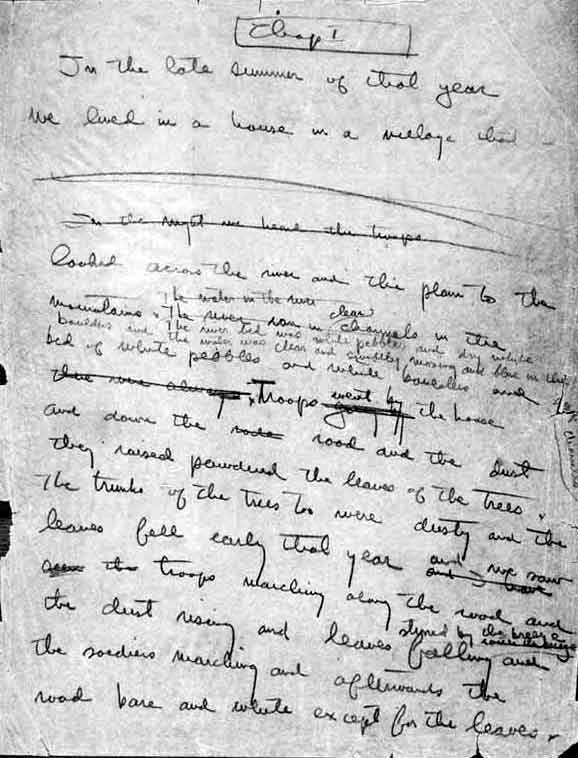 Chap I
In the late summer of that year
we lived in a house in a village that
In the night we heard the troops
looked across the river and the plain to the
mountains. The river ran in channels in the
The water in the river clear
The river bed was white pebbles and dry white
boulders and the water was clear and swiftly moving and blue in the
bed of white pebbles and white boulders and
there were always Troops went by the house
and down the road and the dust
they raised powdered the leaves of the trees.
The trunks of the trees too were dusty and the
leaves fell early that year and we saw
the troops marching along the road and
the dust rising and leaves falling and
stirred by the breeze
the soldiers marching and afterwards the
road bare and white except for the leaves.